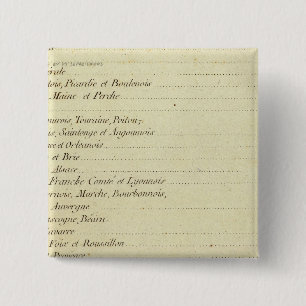 érale
tois, Picardie et Boulenois
Maine et Perche
umurois, Touraine, Poitou,
us, Saintonge et Angoumois
e et Orleanois
et Brie
Alsace
Franche Comté et Lyonnois
ernois, Marche, Bourbonnois,
Auvergne
ascogne, Béarn
avarre
Foix et Roussillon
Provence